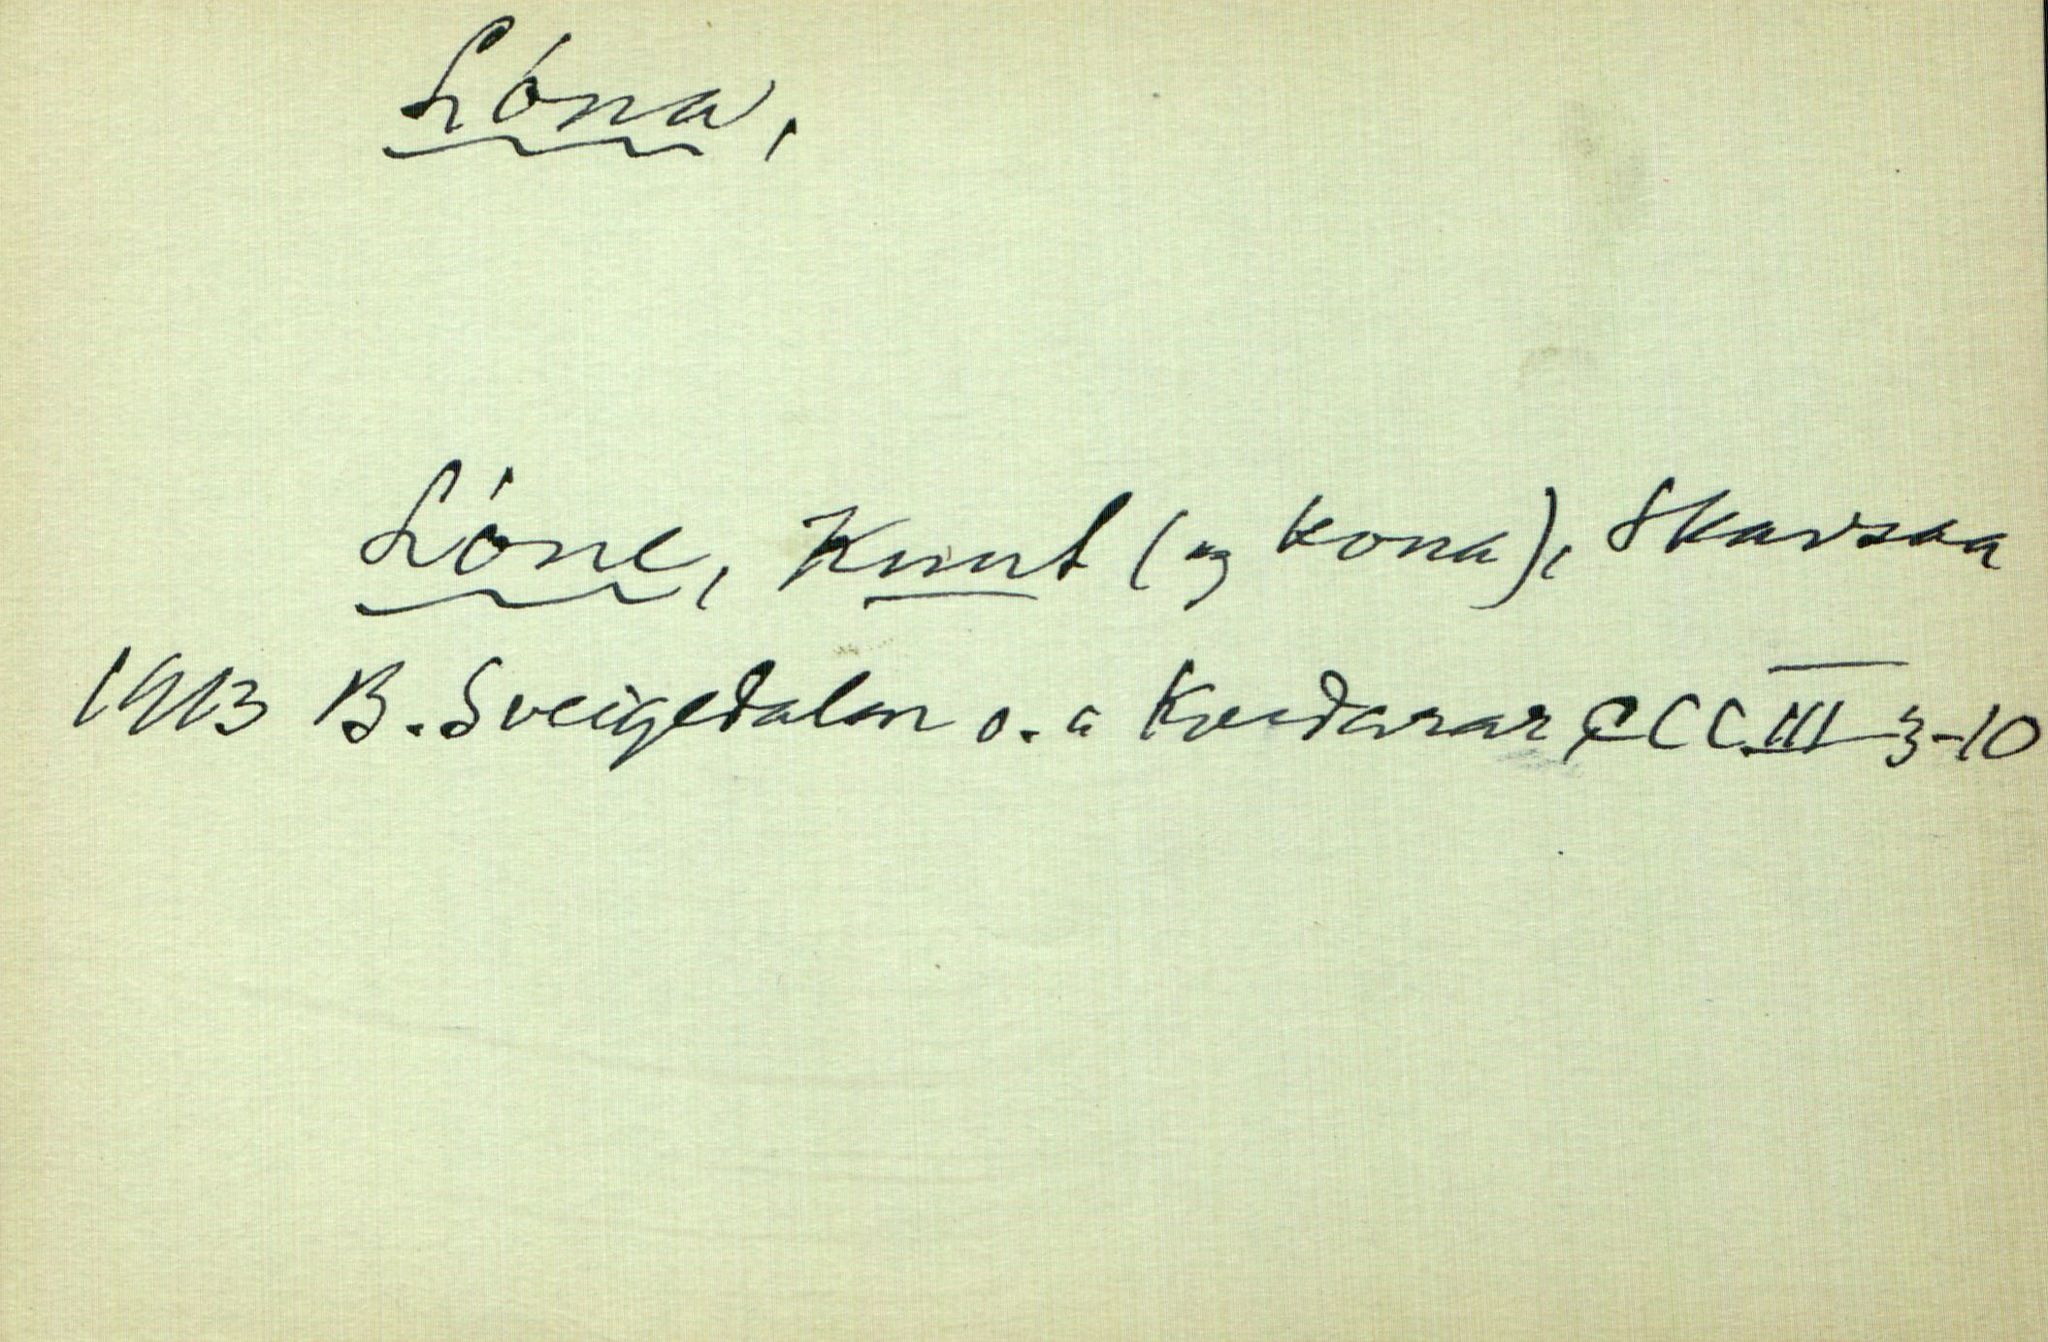 Lóna,
Lóne, Knut (og kona), Skarsaa
1913 B. Sveigedalen o. a Kvedarar CCCIII 3-10